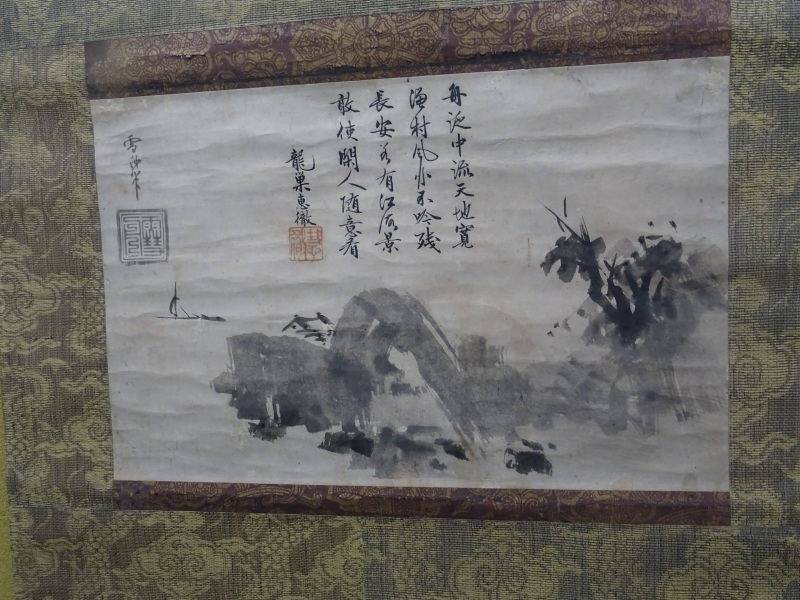 舟泛中流天地寛
漁村風小不吟残
長安若有江南景
敢使閑人随意看
龍巣恵徹
雪舟筆